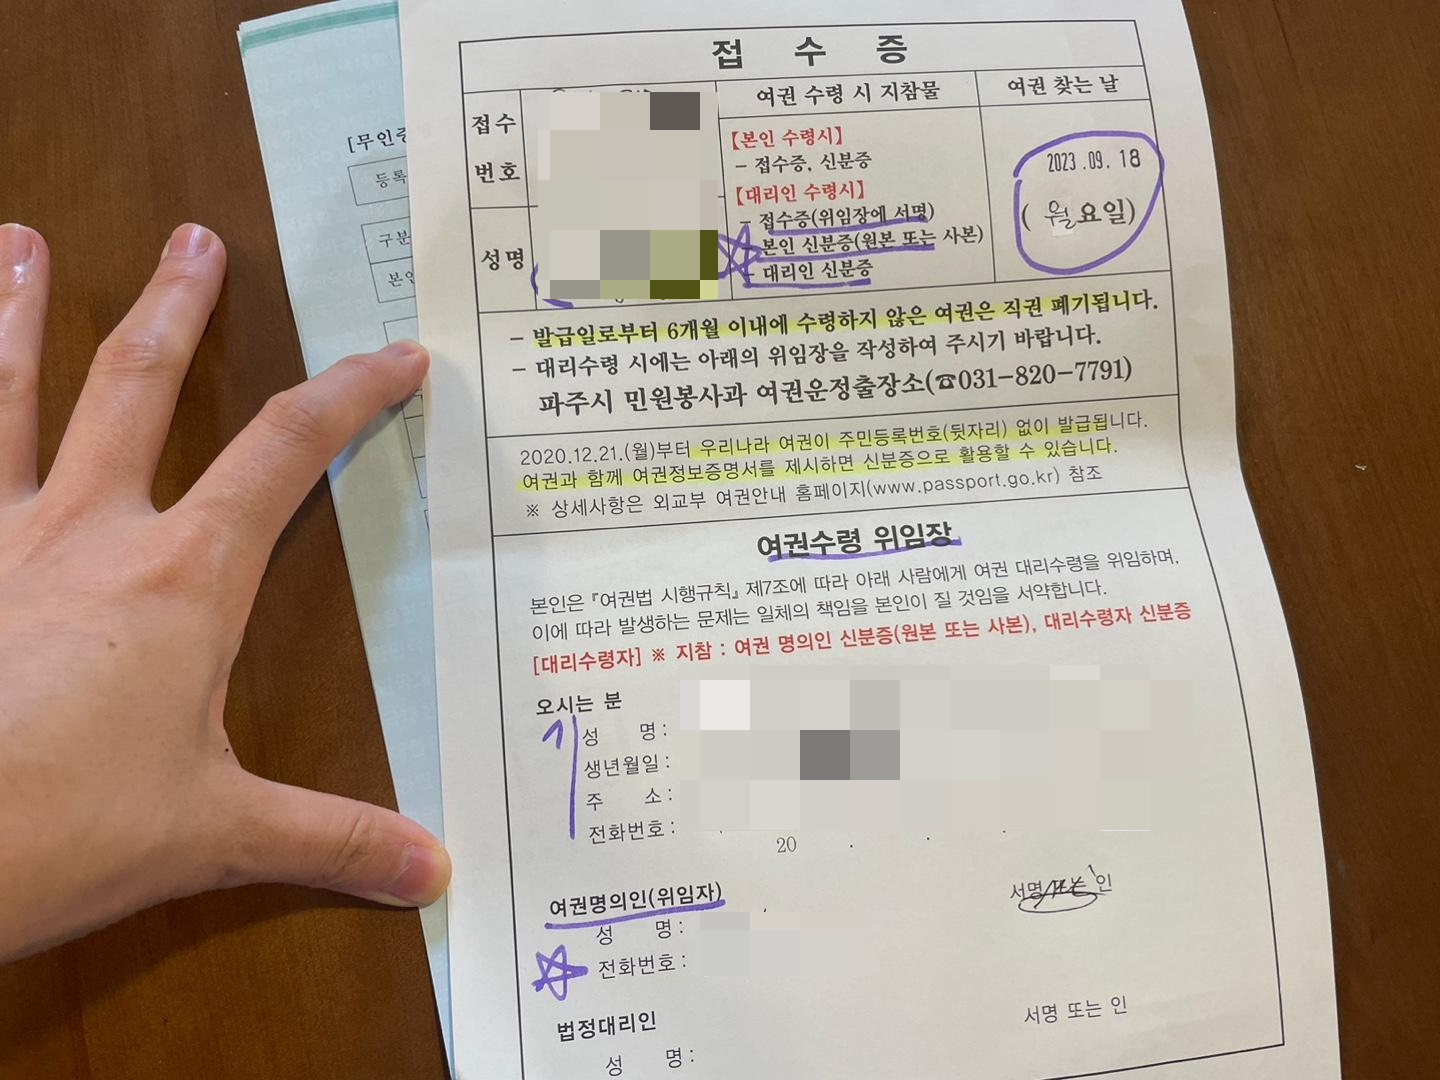 접 수 증
접수
번호
성명
여권 수령 시 지참물
【본인 수령시】
- 접수증, 신분증
【대리인 수령시】
- 접수증(위임장에 서명)
- 본인 신분증(원본 또는 사본)
- 대리인 신분증
여권 찾는 날
2023.09.18
( 월요일)
- 발급일로부터 6개월 이내에 수령하지 않은 여권은 직권 폐기됩니다.
- 대리수령 시에는 아래의 위임장을 작성하여 주시기 바랍니다.
파주시 민원봉사과 여권운정출장소(☎031-820-7791)
2020.12.21.(월)부터 우리나라 여권이 주민등록번호(뒷자리) 없이 발급됩니다.
여권과 함께 여권정보증명서를 제시하면 신분증으로 활용할 수 있습니다.
※ 상세사항은 외교부 여권안내 홈페이지(www.passport.go.kr) 참조
여권수령 위임장
본인은 『여권법 시행규칙』 제7조에 따라 아래 사람에게 여권 대리수령을 위임하며,
이에 따라 발생하는 문제는 일체의 책임을 본인이 질 것임을 서약합니다.
[대리수령자] ※ 지참 : 여권 명의인 신분증(원본 또는 사본), 대리수령자 신분증
오시는 분
성 명 :
생년월일 :
주 소 :
전화번호 :
20 . .
여권명의인(위임자)
서명 인
성 명 :
전화번호 :
법정대리인
서명 또는 인
성 명 :
[무인증
등록
구분
본인